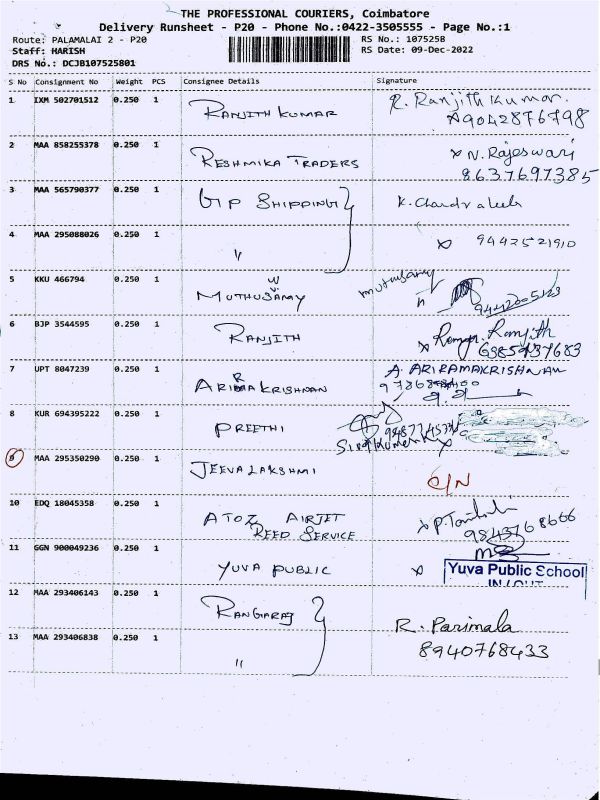 THE PROFESSIONAL COURIERS, Coimbatore
Delivery Runsheet - P20 - Phone No.:0422-3505555 - Page No.:1
Route: PALAMALAI 2 - P20
RS No.: 1075258
Staff: HARISH
RS Date: 09-Dec-2022
DRS No.: DCJB107525801
S No Consignment No Weight PCS Consignee Details Signature
1 IXM 502701512 0.250 1 RANJITH KUMAR R. Ranjith Kumar.
9042876798
2 MAA 858255378 0.250 1 RESHMIKA TRADERS N. Rajeswari
8637697385
3 MAA 565790377 0.250 1 G P SHIPPING
4 MAA 295088026 0.250 1 " 9442521910
5 KKU 466794 0.250 1 MUTHUSAMY muthusamy
6 BJP 3544595 0.250 1 RANJITH Ranjith
7 UPT 8047239 0.250 1 ARIRAMAKRISHNAN A. ARIRAMAKRISHNAN
8 KUR 694395222 0.250 1 PREETHI
9 MAA 295350290 0.250 1 JEEVALAKSHMI C/N
10 EDQ 18045358 0.250 1 A TO Z AIRJET
REED SERVICE
9843768666
11 GGN 900049236 0.250 1 YUVA PUBLIC Yuva Public School
12 MAA 293406143 0.250 1 RANGARAJ R. Parimala
8940768433
13 MAA 293406838 0.250 1 "